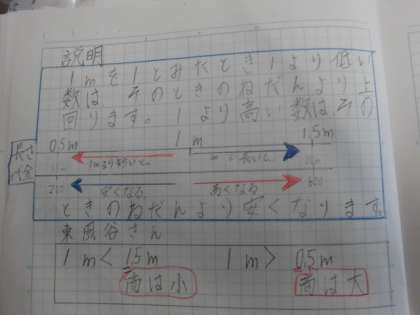 説明
1mを1とみたとき1より低い
数は そのときのねだんより上
回ります。1より高い数はその
0.5m 1m 1.5m
長さ
1mより短いと
代金
200 安くなる 高くなる
ときのねだんより安くなります。
東風谷さん
1m<1.5m 1m>0.5m
商は小 商は大